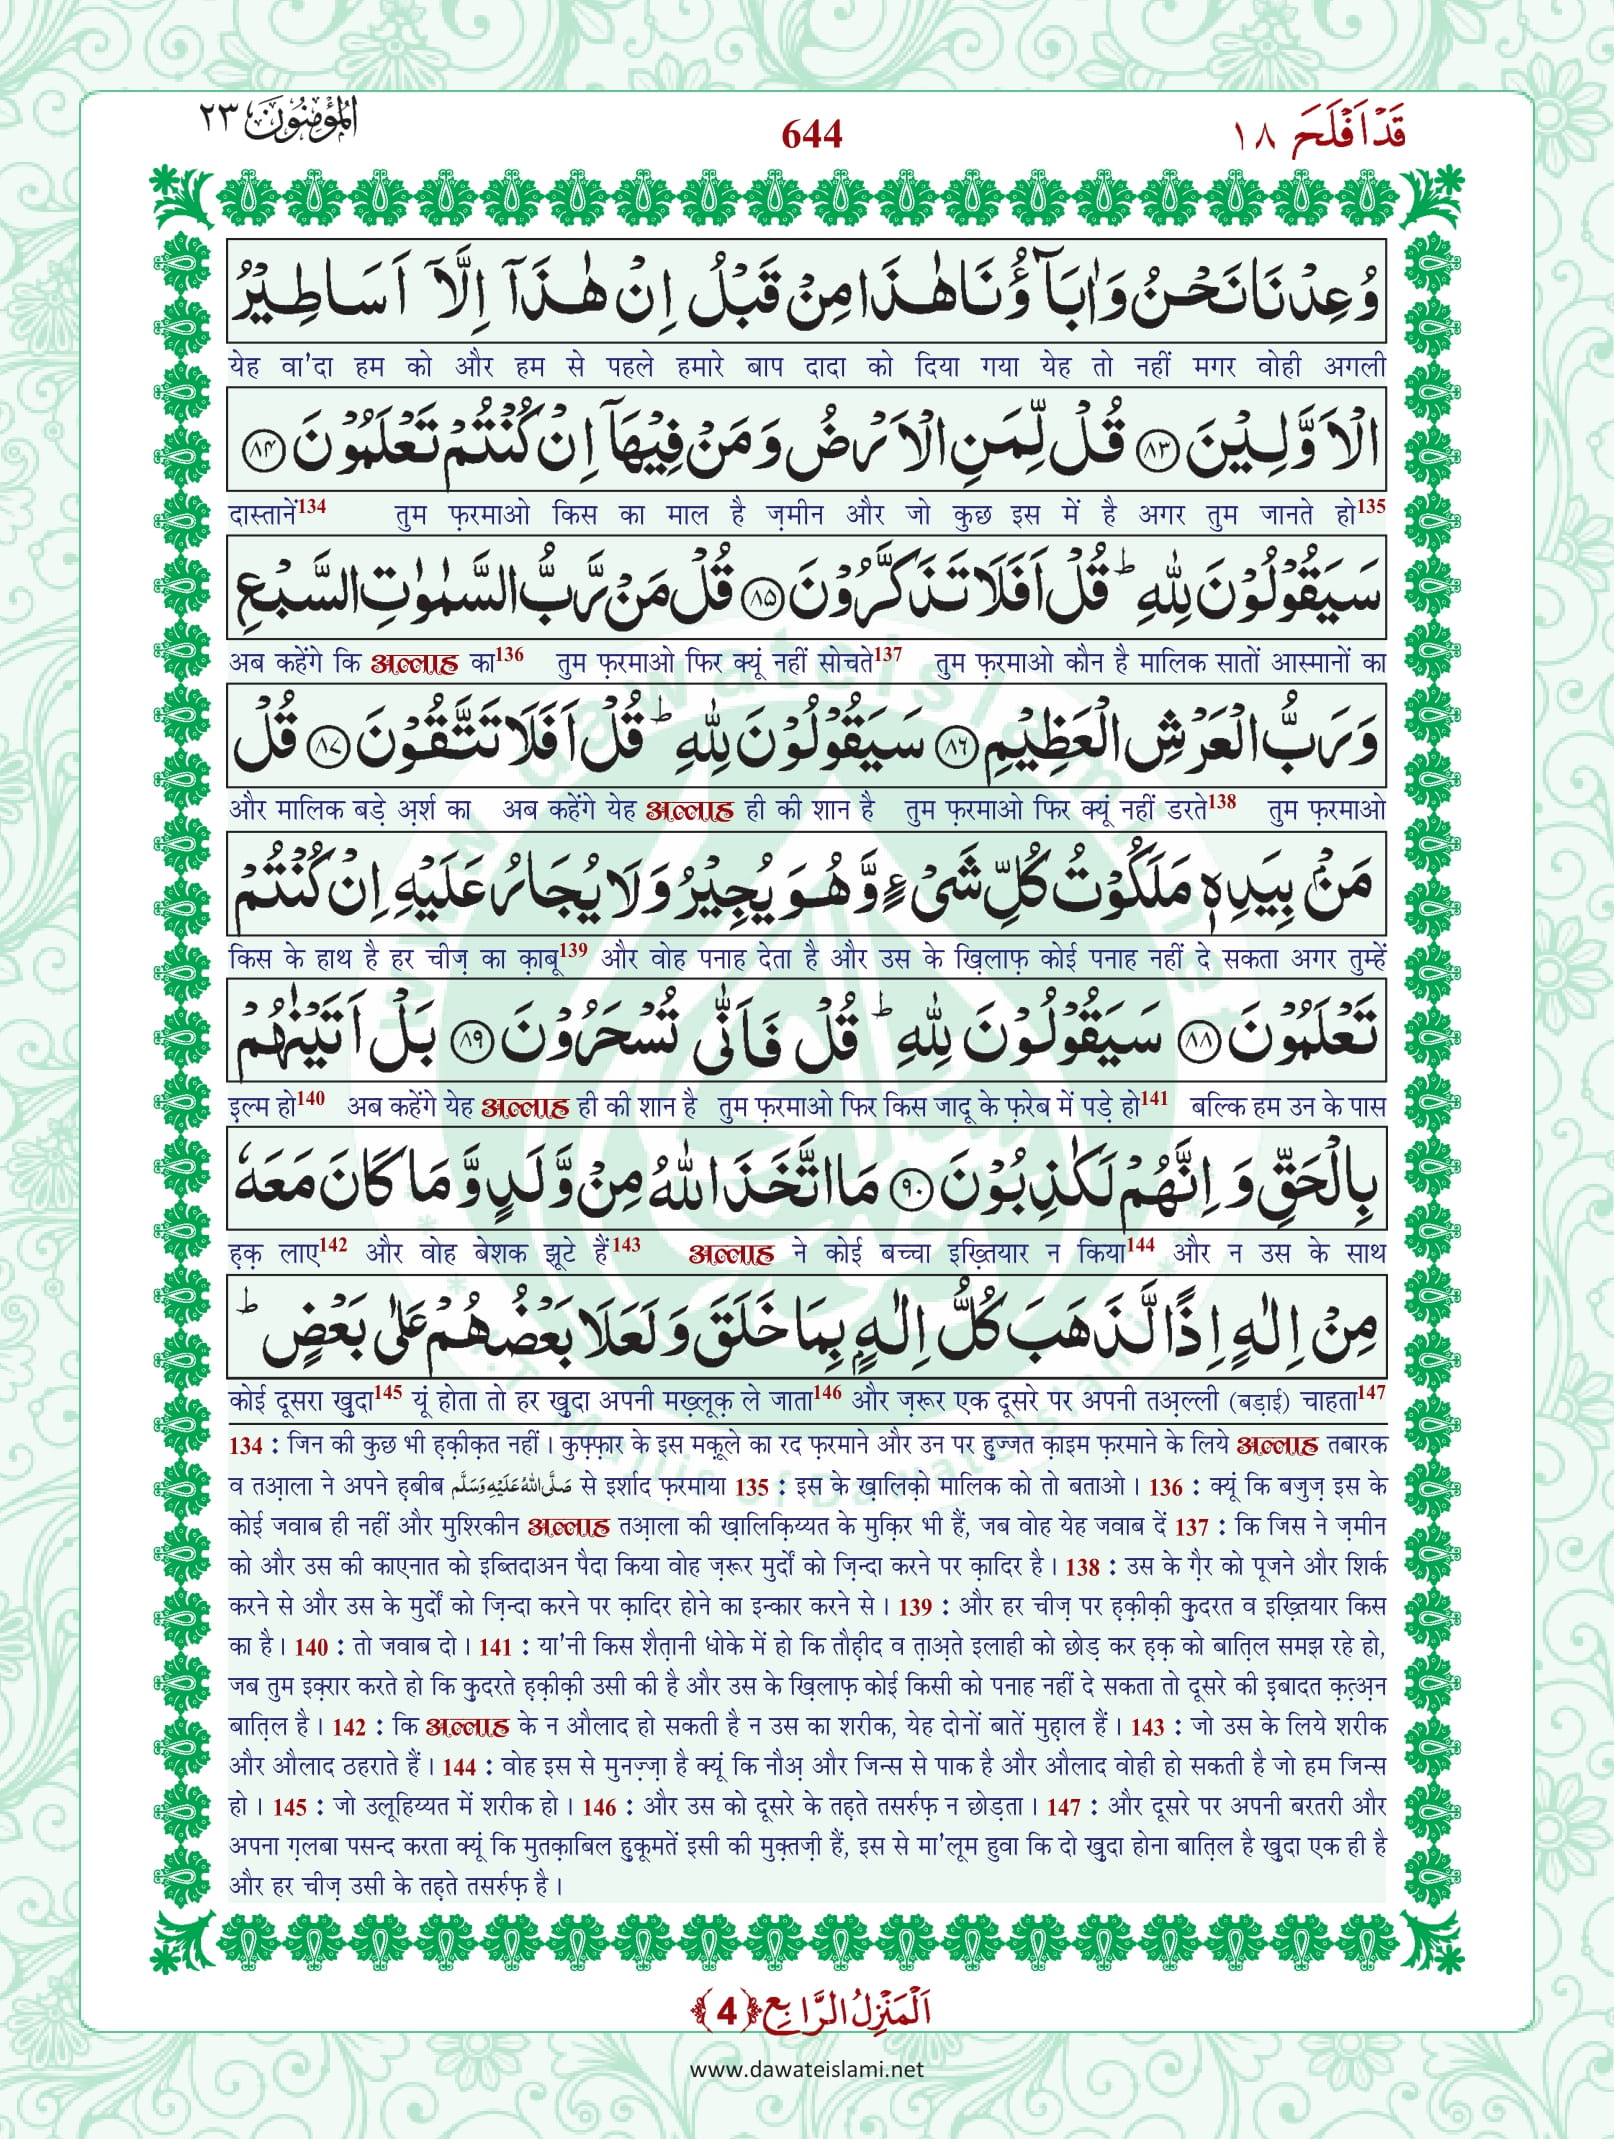 قَدْ اَفْلَحَ ١٨
644
اَلْمُؤْمِنُوْنَ ٢٣
وُعِدْنَا نَحْنُ وَاٰبَآؤُنَا هٰذَا مِنْ قَبْلُ اِنْ هٰذَآ اِلَّاۤ اَسَاطِیْرُ
येह वा'दा हम को और हम से पहले हमारे बाप दादा को दिया गया येह तो नहीं मगर वोही अगली
الْاَوَّلِیْنَ ﴿۸۳﴾ قُلْ لِّمَنِ الْاَرْضُ وَ مَنْ فِیْهَاۤ اِنْ كُنْتُمْ تَعْلَمُوْنَ ﴿۸۴﴾
दास्तानें134 तुम फ़रमाओ किस का माल है ज़मीन और जो कुछ इस में है अगर तुम जानते हो135
سَیَقُوْلُوْنَ لِلّٰهِ ؕ قُلْ اَفَلَا تَذَكَّرُوْنَ ﴿۸۵﴾ قُلْ مَنْ رَّبُّ السَّمٰوٰتِ السَّبْعِ
अब कहेंगे कि अल्लाह का136 तुम फ़रमाओ फिर क्यूं नहीं सोचते137 तुम फ़रमाओ कौन है मालिक सातों आस्मानों का
وَ رَبُّ الْعَرْشِ الْعَظِیْمِ ﴿۸۶﴾ سَیَقُوْلُوْنَ لِلّٰهِ ؕ قُلْ اَفَلَا تَتَّقُوْنَ ﴿۸۷﴾ قُلْ
और मालिक बड़े अ़र्श का अब कहेंगे येह अल्लाह ही की शान है तुम फ़रमाओ फिर क्यूं नहीं डरते138 तुम फ़रमाओ
مَنْۢ بِیَدِهٖ مَلَكُوْتُ كُلِّ شَیْءٍ وَّ هُوَ یُجِیْرُ وَ لَا یُجَارُ عَلَیْهِ اِنْ كُنْتُمْ
किस के हाथ है हर चीज़ का क़ाबू139 और वोह पनाह देता है और उस के ख़िलाफ़ कोई पनाह नहीं दे सकता अगर तुम्हें
تَعْلَمُوْنَ ﴿۸۸﴾ سَیَقُوْلُوْنَ لِلّٰهِ ؕ قُلْ فَاَنّٰى تُسْحَرُوْنَ ﴿۸۹﴾ بَلْ اَتَیْنٰهُمْ
इल्म हो140 अब कहेंगे येह अल्लाह ही की शान है तुम फ़रमाओ फिर किस जादू के फ़रेब में पड़े हो141 बल्कि हम उन के पास
بِالْحَقِّ وَ اِنَّهُمْ لَكٰذِبُوْنَ ﴿۹۰﴾ مَا اتَّخَذَ اللّٰهُ مِنْ وَّلَدٍ وَّ مَا كَانَ مَعَهٗ
ह़क़ लाए142 और वोह बेशक झूटे हैं143 अल्लाह ने कोई बच्चा इख़्तियार न किया144 और न उस के साथ
مِنْ اِلٰهٍ اِذًا لَّذَهَبَ كُلُّ اِلٰهٍۭ بِمَا خَلَقَ وَ لَعَلَا بَعْضُهُمْ عَلٰى بَعْضٍ ؕ
कोई दूसरा ख़ुदा145 यूं होता तो हर ख़ुदा अपनी मख़्लूक़ ले जाता146 और ज़रूर एक दूसरे पर अपनी तअ़ल्ली (बड़ाई) चाहता147
134 : जिन की कुछ भी ह़क़ीक़त नहीं। कुफ़्फ़ार के इस मक़ूले का रद फ़रमाने और उन पर हुज्जत क़ाइम फ़रमाने के लिये अल्लाह तबारक
व तआ़ला ने अपने ह़बीब صَلَّى اللهُ عَلَيْهِ وَسَلَّم से इर्शाद फ़रमाया 135 : इस के ख़ालिक़ो मालिक को तो बताओ। 136 : क्यूं कि बजुज़ इस के
कोई जवाब ही नहीं और मुश्रिकीन अल्लाह तआ़ला की ख़ालिक़िय्यत के मुक़िर भी हैं, जब वोह येह जवाब दें 137 : कि जिस ने ज़मीन
को और उस की काएनात को इब्तिदाअन पैदा किया वोह ज़रूर मुर्दों को ज़िन्दा करने पर क़ादिर है। 138 : उस के ग़ैर को पूजने और शिर्क
करने से और उस के मुर्दों को ज़िन्दा करने पर क़ादिर होने का इन्कार करने से। 139 : और हर चीज़ पर ह़क़ीक़ी क़ुदरत व इख़्तियार किस
का है। 140 : तो जवाब दो। 141 : या'नी किस शैत़ानी धोके में हो कि तौह़ीद व त़ाअ़ते इलाही को छोड़ कर ह़क़ को बात़िल समझ रहे हो,
जब तुम इक़्रार करते हो कि क़ुदरते ह़क़ीक़ी उसी की है और उस के ख़िलाफ़ कोई किसी को पनाह नहीं दे सकता तो दूसरे की इ़बादत क़त़्अ़न
बात़िल है। 142 : कि अल्लाह के न औलाद हो सकती है न उस का शरीक, येह दोनों बातें मुह़ाल हैं। 143 : जो उस के लिये शरीक
और औलाद ठहराते हैं। 144 : वोह इस से मुनज़्ज़ा है क्यूं कि नौअ़ और जिन्स से पाक है और औलाद वोही हो सकती है जो हम जिन्स
हो। 145 : जो उलूहिय्यत में शरीक हो। 146 : और उस को दूसरे के तह़ते तसर्रुफ़ न छोड़ता। 147 : और दूसरे पर अपनी बरतरी और
अपना ग़लबा पसन्द करता क्यूं कि मुतक़ाबिल हुकूमतें इसी की मुक़्तज़ी हैं, इस से मा'लूम हुवा कि दो ख़ुदा होना बात़िल है ख़ुदा एक ही है
और हर चीज़ उसी के तह़ते तसर्रुफ़ है।
اَلْمَنْزِلُ الرَّابِع ﴿4﴾
www.dawateislami.net